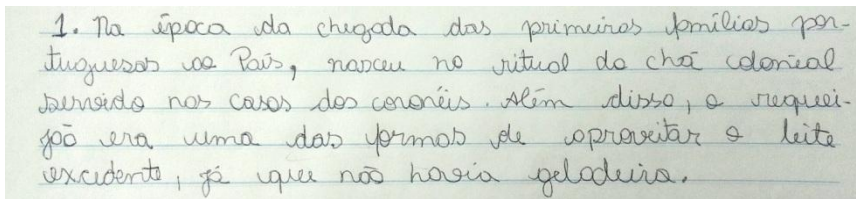 1. Na época da chegada das primeiras famílias por-
tuguesas ao País, nasceu no ritual do chá colonial
servido nas casas dos coronéis. Além disso, o requei-
jão era uma das formas de aproveitar o leite
excedente, já que não havia geladeira.